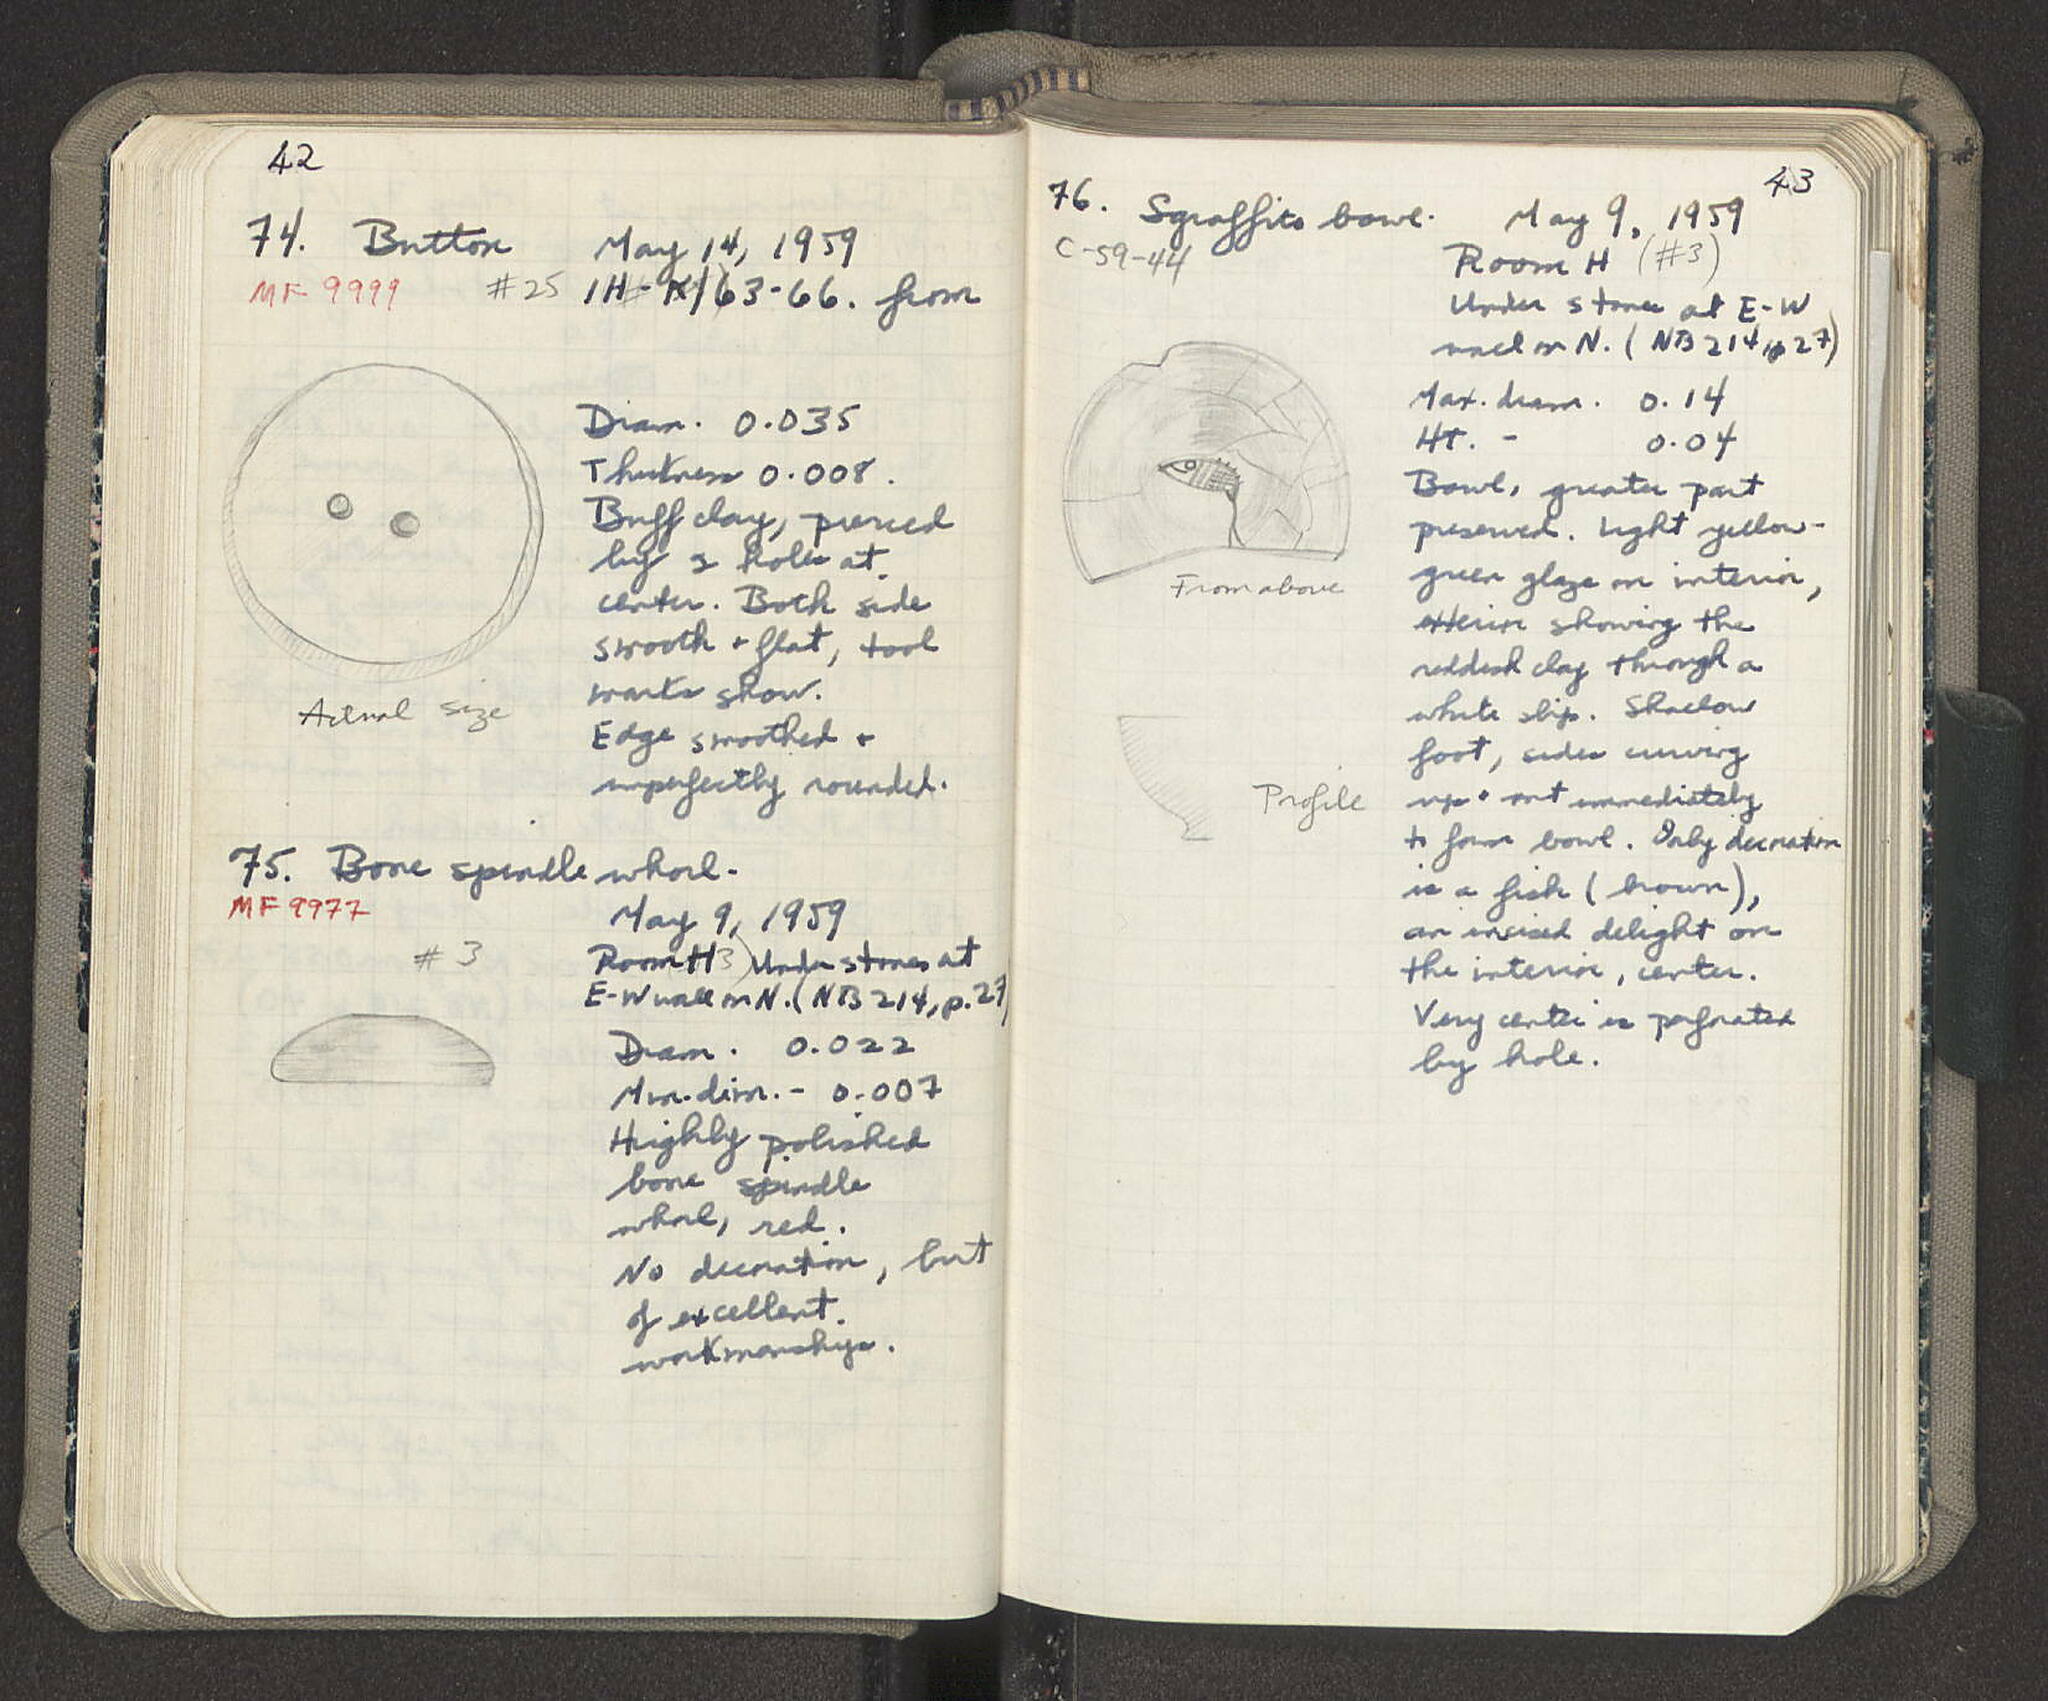 42
74. Button May 14, 1959
MF 9999 #25 1H-K/63-66. from
Diam. 0.035
Thickness 0.008.
Buff clay, pierced
by 2 holes at
center. Both side
smooth + flat, tool
marks show.
Edge smoothed +
imperfectly rounded.
Actual size
75. Bone spindle whorl.
MF 9977
May 9, 1959
#3 Room H 3) Under stones at
E-W wall on N. (NB 214, p. 27)
Diam. 0.022
Min. dim. - 0.007
Highly polished
bone spindle
whorl, red.
No decoration, but
of excellent
workmanship.
43
76. Sgraffito bowl. May 9, 1959
C-59-44 Room H (#3)
Under stones at E-W
wall on N. (NB 214, p 27)
Max. diam. 0.14
Ht. - 0.04
Bowl, greater part
preserved. Light yellow-
green glaze on interior,
exterior showing the
reddish clay through a
white slip. Shallow
foot, sides curving
up + out immediately
to form bowl. Only decoration
is a fish (brown),
an incised delight on
the interior, center.
Very center is perforated
by hole.
From above
Profile